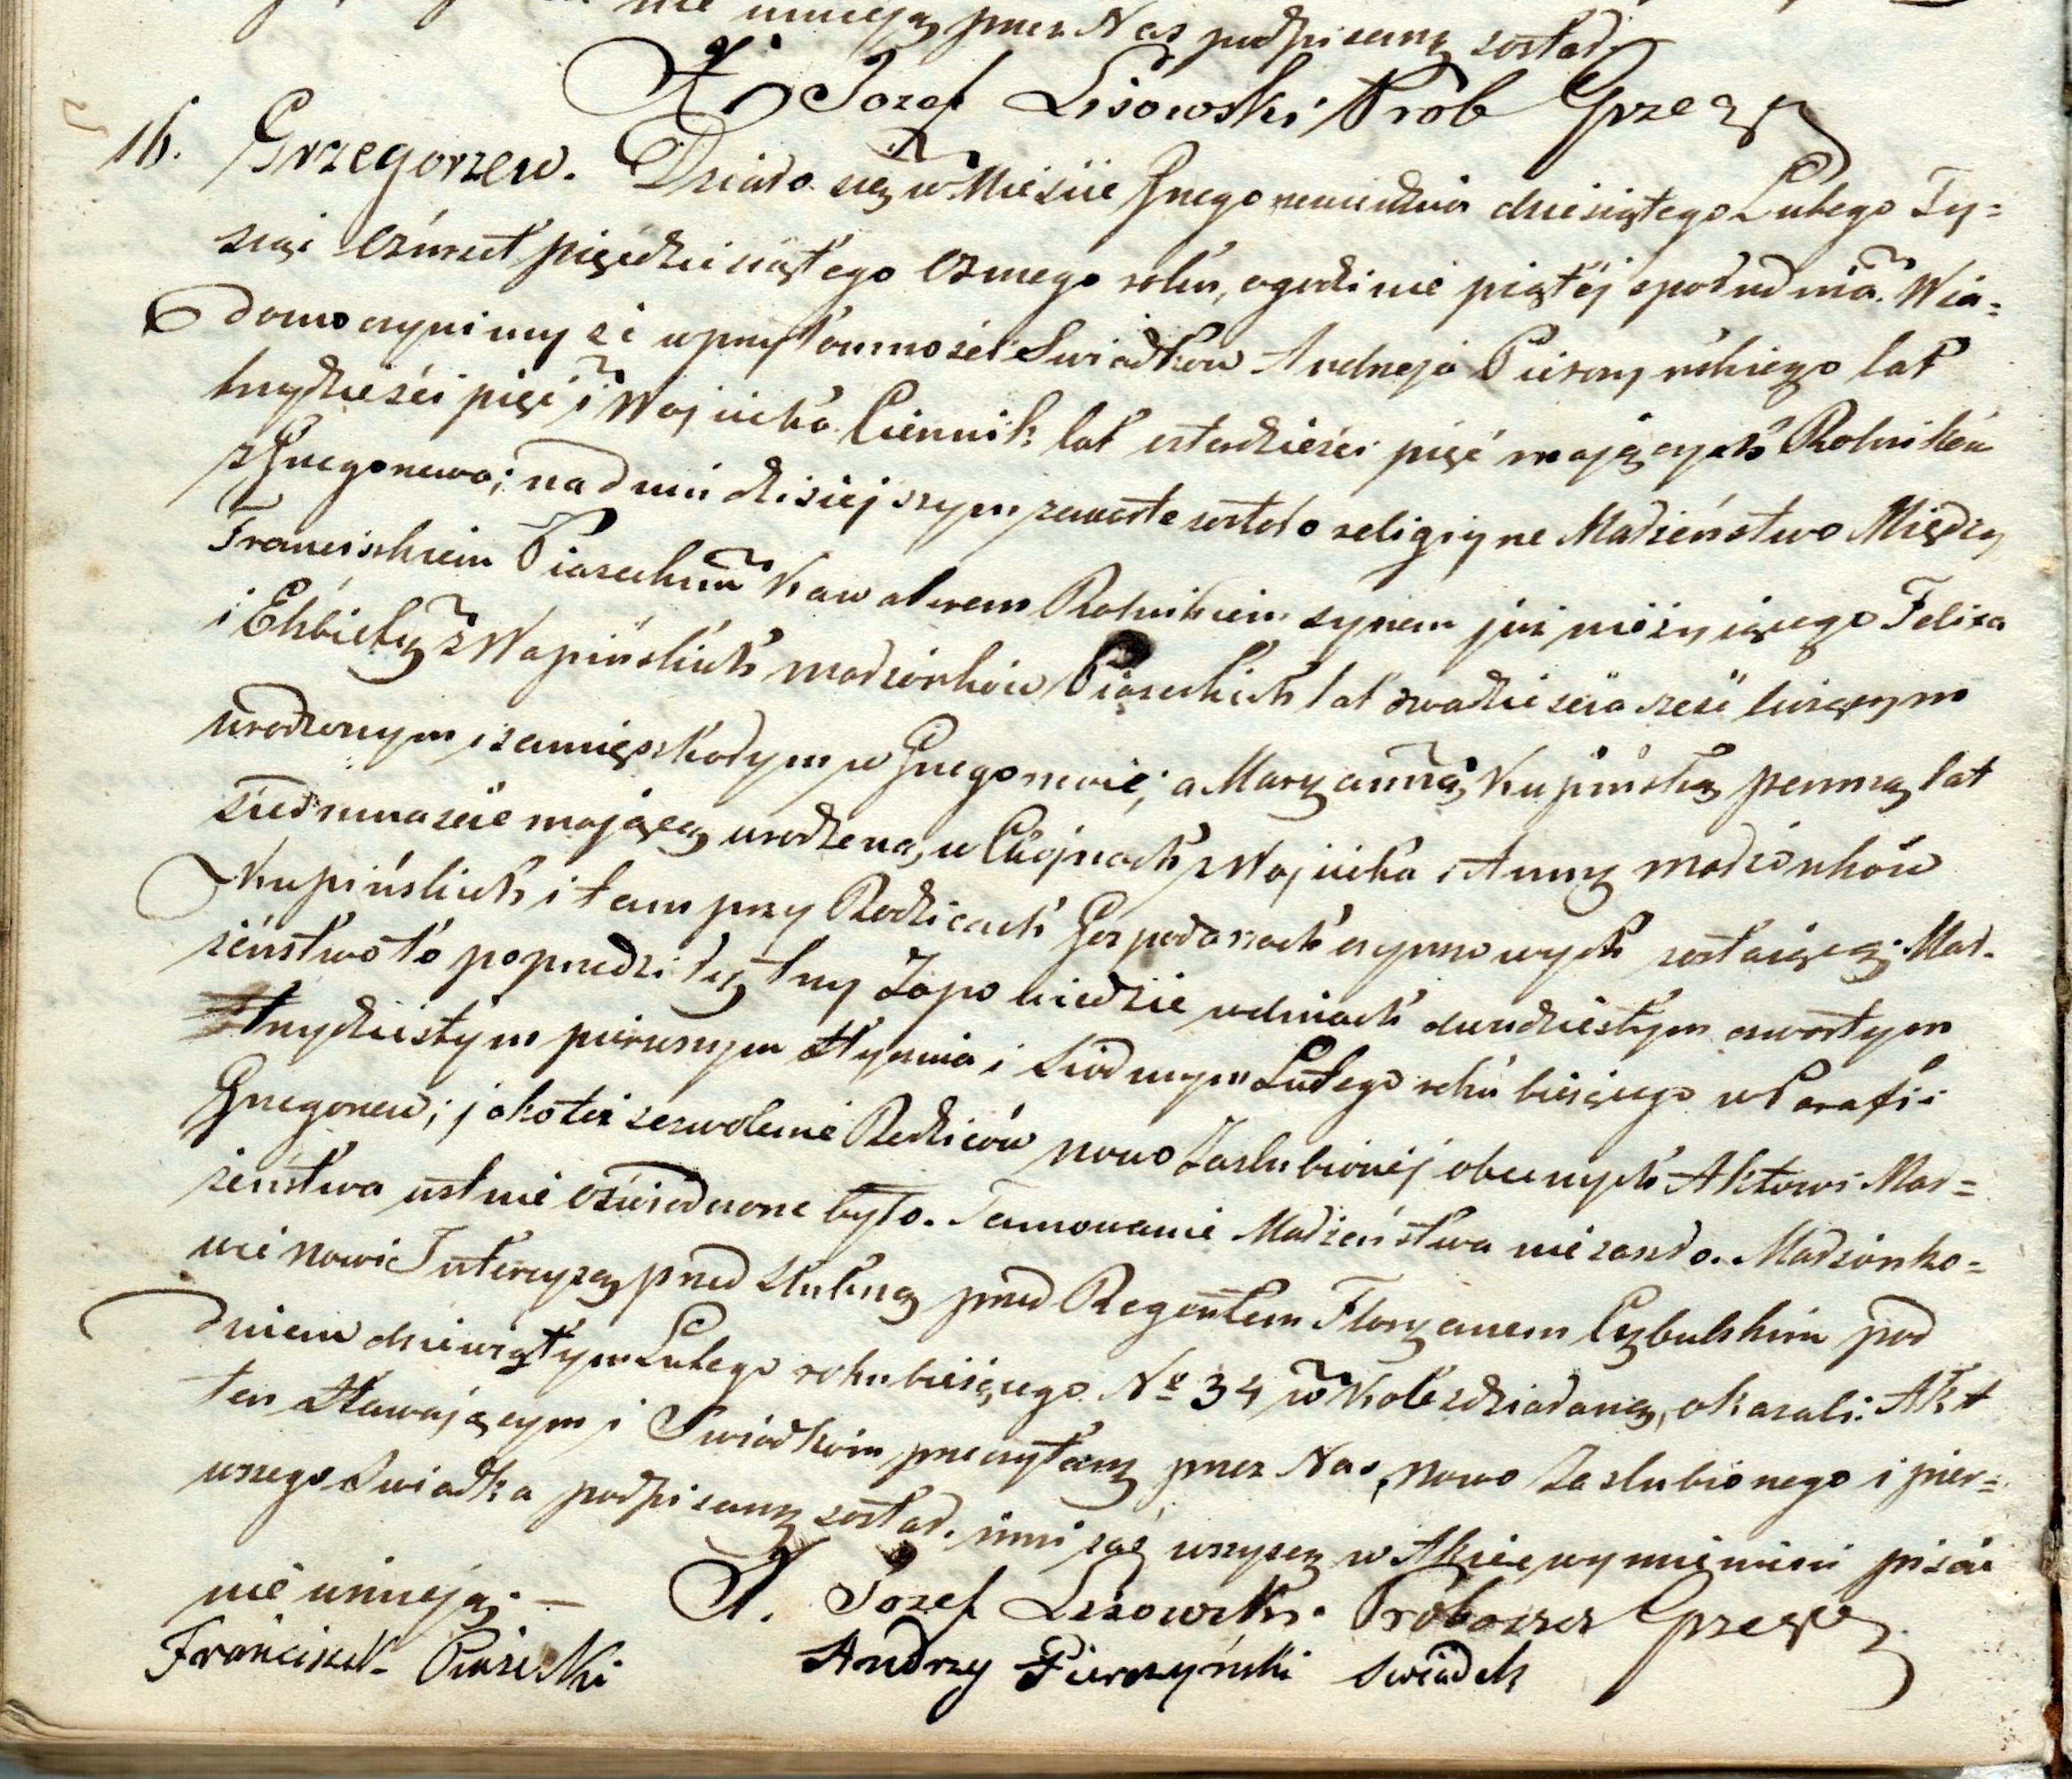 nie umieją przez Nas podpisany został
X. Jozef Lisowski Prob Grzego
16. Grzegorzew. Działo się w Mieście Grzegorzewie dnia dziesiątego Lutego Ty=
siąc ośmset pięćdziesiątego osmego roku, o godzinie piątéj popołudniu. Wia=
domo czynimy że w przytomności Swiadków Andrzeja Pierzyńskiego lat
trzydzieści pięć i Wojciecha Ciennik lat czterdzieści pięć mających Rolników
z Grzegorzewa; na dniu dzisiejszym zawarte zostało religijne Małżeństwo Między
Franciszkiem Piaseckim Kawalerem Rolnikiem synem już nieżyiącego Felixa
i Elżbiety z Wapińskich małżonków Piaseckich lat dwadzieścia sześć liczącym
urodzonym i zamięszkałym w Grzegorzewie; a Maryanną Kupińską panną lat
siedmnaście mającą urodzoną w Chojnach z Wojciecha i Anny małżonków
Kupińskich i tam przy Rodzicach Gospodarzach czynszowych zostaiącą. Mał=
żeństwo to poprzedziły trzy Zapowiedzie w dniach dwudziestym czwartym
trzydziestym pierwszym Stycznia i Siódmym Lutego roku bieżącego w Parafii
Grzegorzew; jakoteż zezwolenie Rodziców nowo Zaslubionéj obecnych Aktowi Mał=
żeństwa ustnie oświadczone było. Tamowanie Małżeństwa nie zaszło. Małżonko=
wie nowi Intercyzę przed slubną przed Regentem Floryanem Cybulskim pod
dniem dziewiątym Lutego roku bieżącego Nº 34 w Kole zdziałaną, okazali. Akt
ten Stawającym i Swiadkom przeczytany przez Nas, nowo Zaslubionego i pier=
wszego Swiadka podpisany został. inni zaś wszyscy w Akcie wymienieni pisać
nie umieją. —
X. Jozef Lisowski Proboszcz Grzego
Franciszek Piasecki
Andrzy Pierzyński swiadek